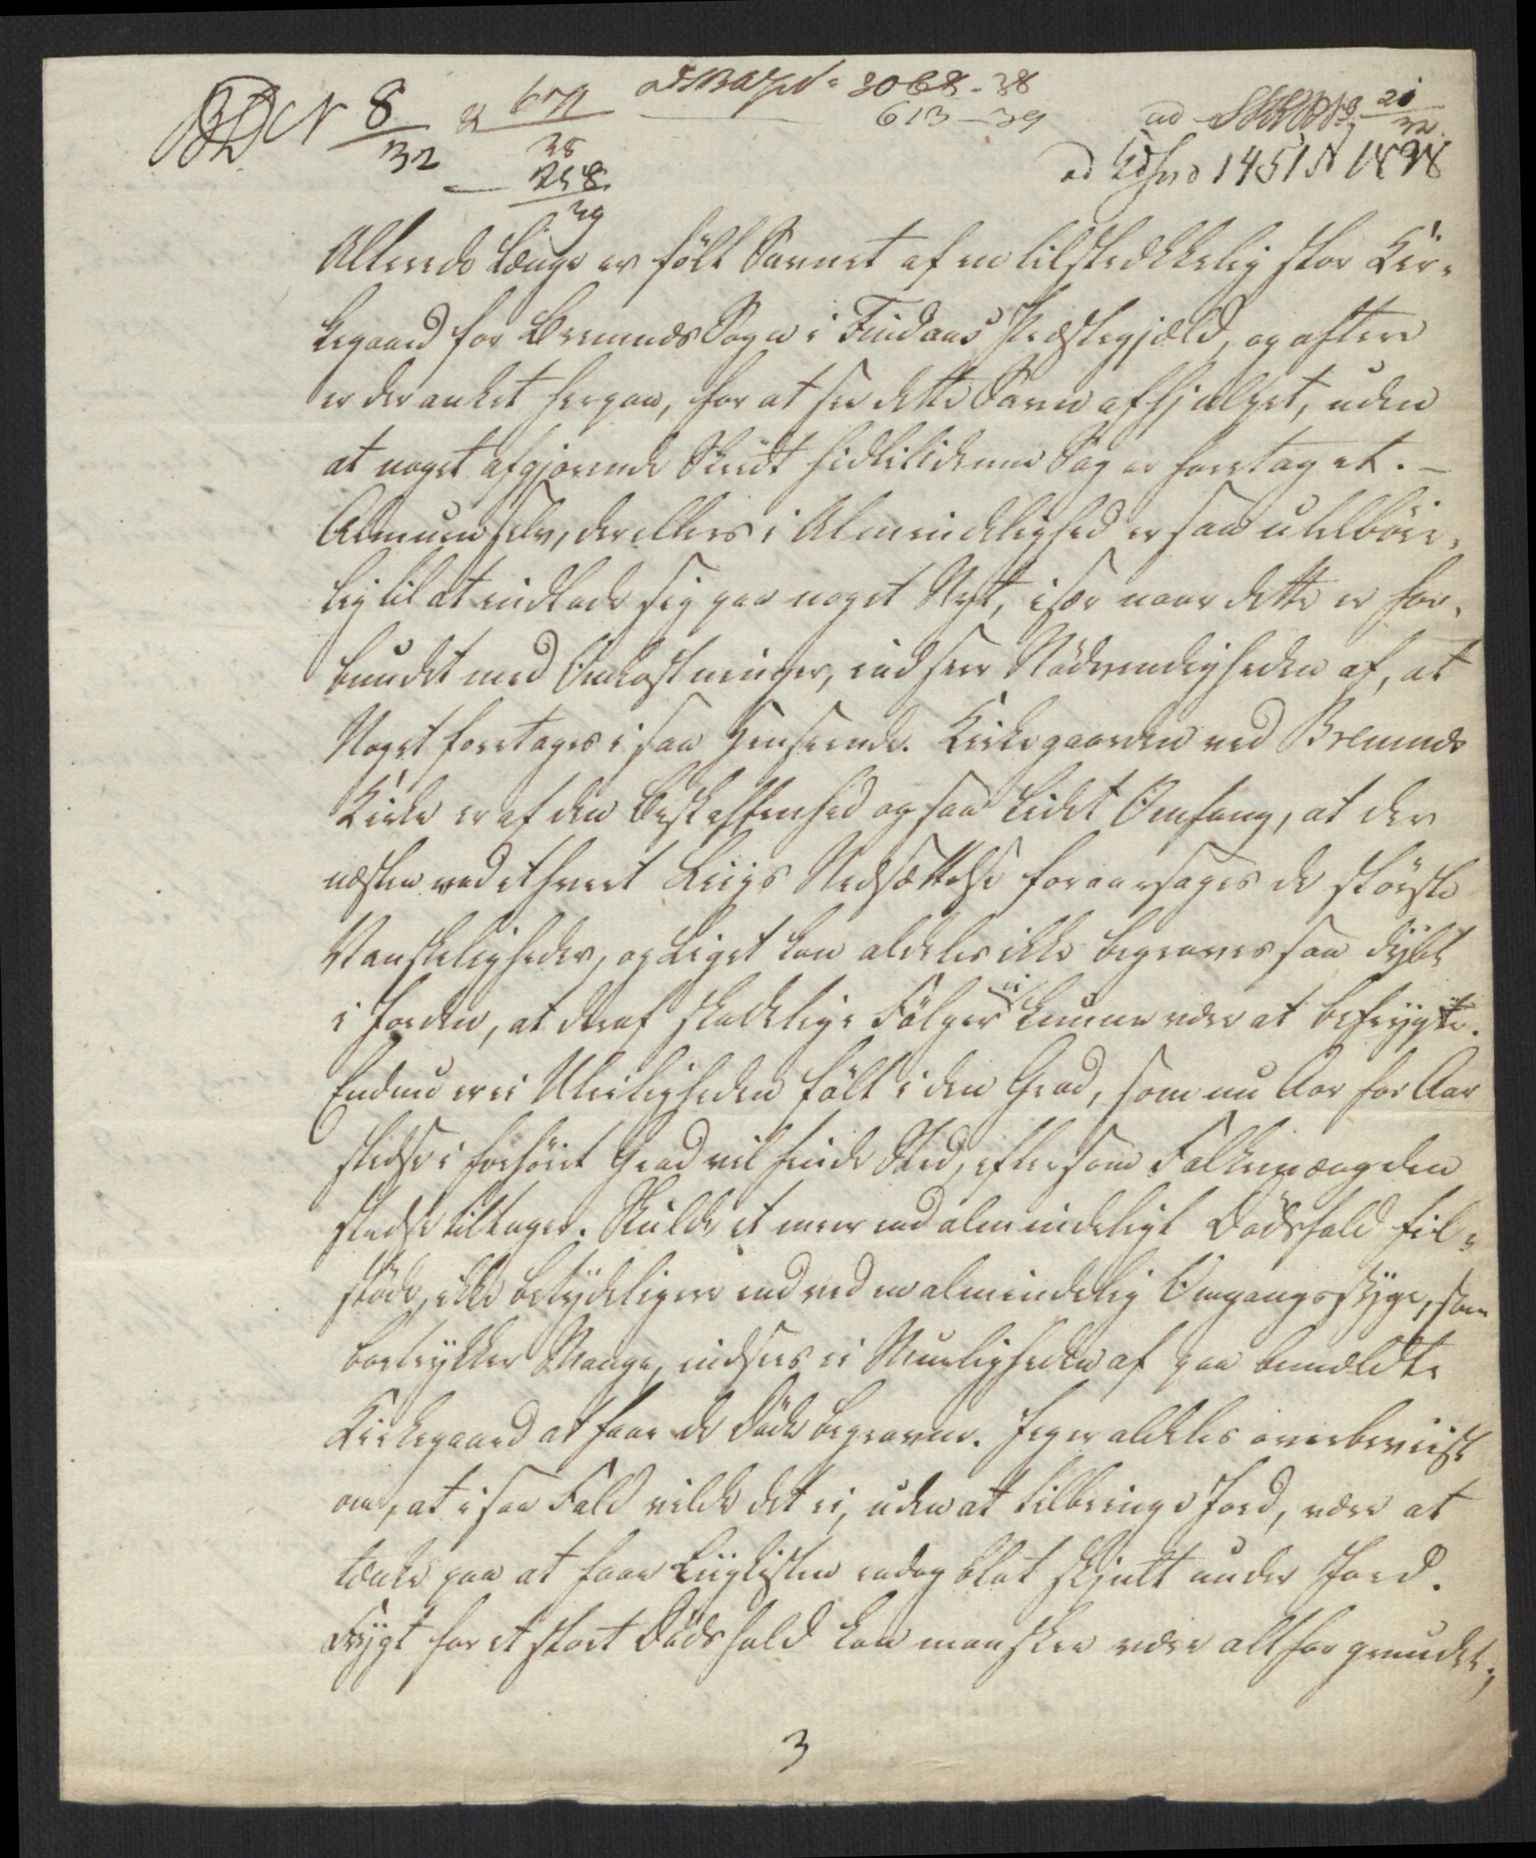 N 8/32 & 679/38 ad 3068-38 ad 21/32
258/39 613-39 ad 1451 N 1838
Allerede længe er følt Savnet af en tilstrækkelig stor Kir-
kegaard for Bremnæs Sogn i Findaas Præstegjæld, og oftere
er der anket herpaa, for at see dette Savn afhjulpet, uden
at noget afgjørende Skridt hidtil i denne Sag er foretaget. –
Almuen selv, der ellers i Almindelighed er saa utilböie-
lig til at indlade sig paa noget Nyt, især naar dette er for-
bundet med Omkostninger, indseer Nödvendigheden af, at
Noget foretages i saa Henseende. Kirkegaarden ved Bremnæs
Kirke er af den Beskaffenhed og saa lidet Omfang, at der
næsten ved ethvert Liigs Nedsættelse foraarsages de störste
Vanskeligheder, og Liget kan aldeles ikke begraves saa dybt
i Jorden, at deraf skadelige Fölger ei kunne være at befrygte.
Endnu er ei Uleiligheden fölt i den Grad, som nu Aar for Aar
stedse i forhöiet Grad vil finde Sted, eftersom Folkemængden
stedse tiltager. Skulde et meer end almindeligt Dödsfald til-
stöde, ikke betydeligere end ved en almindelig Omgangssyge, som
bortrykker Mange, indsees ei Mueligheden af paa bemeldte
Kirkegaard at faae de Döde begravne. Jeg er aldeles overbeviist
om, at i saa Fald vilde det ei, uden at tilbringe Jord, være at
tænke paa at faae Liigkisten endog blot skjult under Jord.
Frygt for et stort Dödsfald kan maaskee være alt for grundet,
3